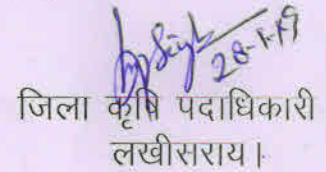 28-1-19
जिला कृषि पदाधिकारी
लखीसराय।